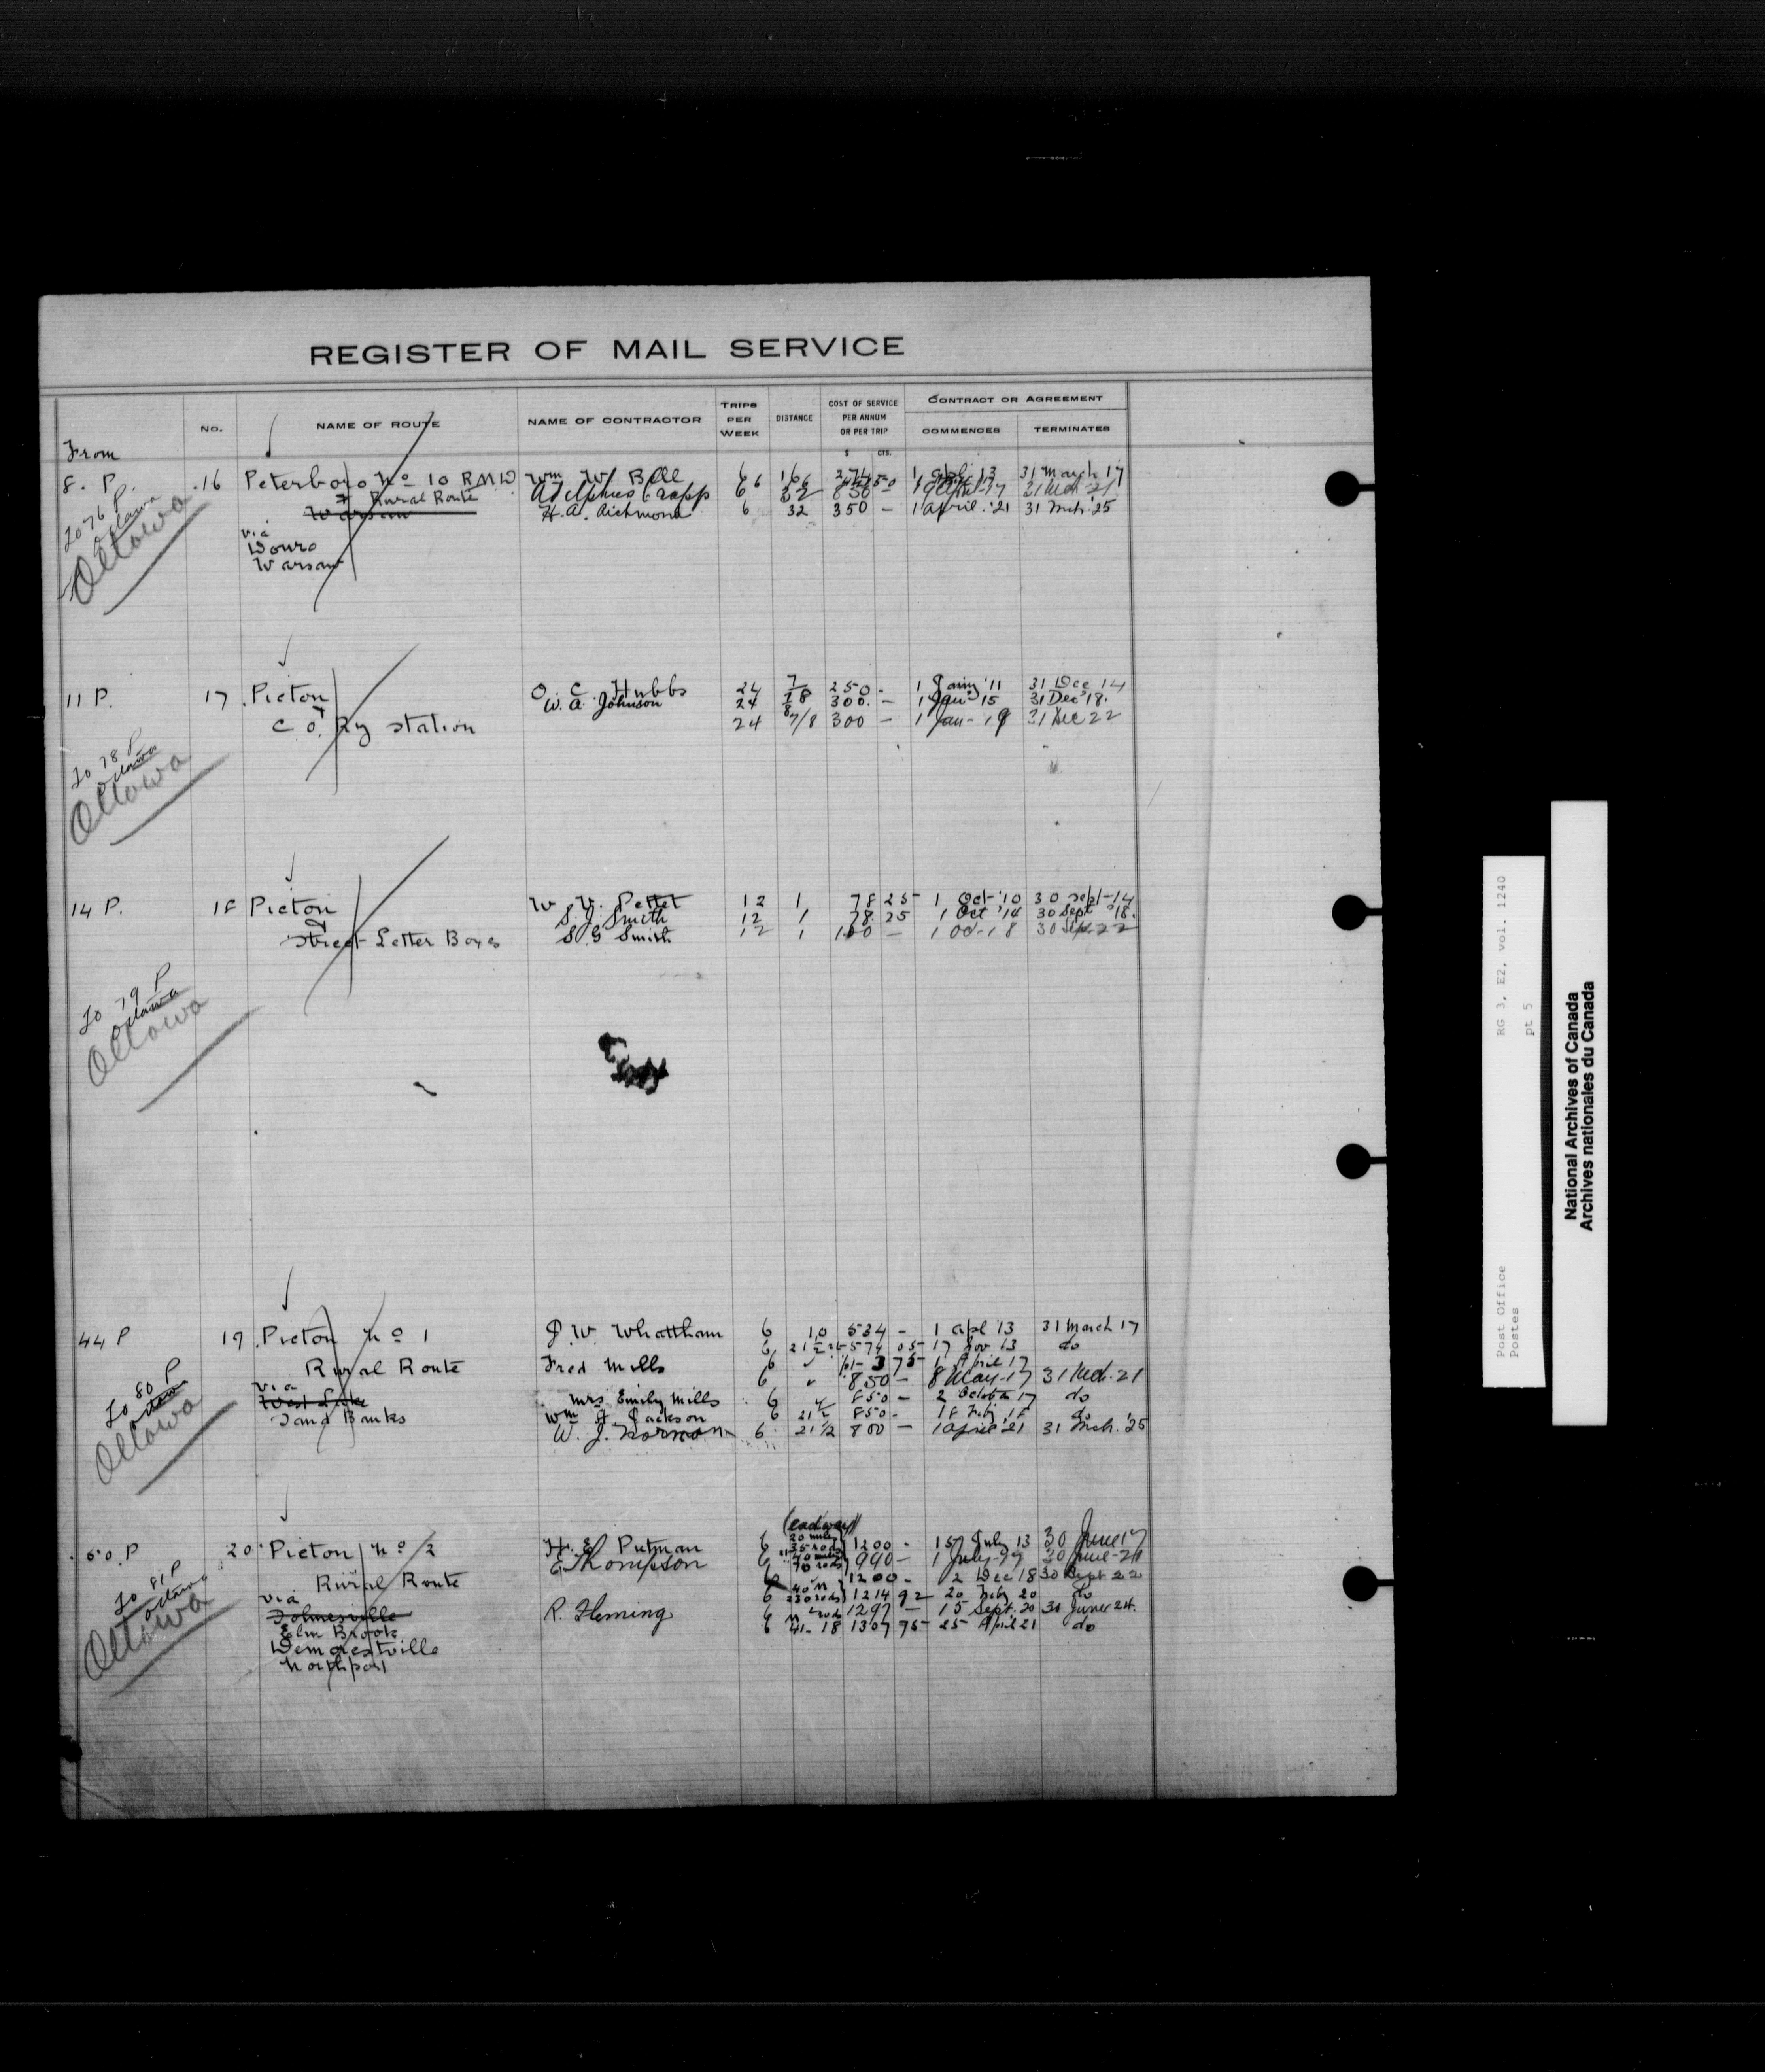 REGISTER OF MAIL SERVICE
From
No.
NAME OF ROUTE
NAME OF CONTRACTOR
TRIPS PER WEEK
DISTANCE
COST OF SERVICE PER ANNUM OR PER TRIP
$ CTS.
CONTRACT OR AGREEMENT
COMMENCES
TERMINATES
8. P. 16 Peterboro No 10 RMD Wm W. Bell 6 16 274 1 Apl 13 31 March 17
& Rural Route 6 32 850 - 31 Mch 21
Warsaw H.A. Richmond 6 32 350 - 1 April. '21 31 Mch. '25
via
Douro
Warsaw
To 76 P
Ottawa
Ottawa
11 P. 17 Picton O. C. Hubbs 24 7/8 250 - 1 Jany '11 31 Dec 14
& W. A. Johnson 24 7/8 300. - 1 Jan '15 31 Dec '18.
C. O. Ry Station 24 7/8 300 - 1 Jan - 19 31 Dec 22
To 78 P
Ottawa
Ottawa
14 P. 18 Picton W. V. Pettet 12 1 78 25 1 Oct '10 30 Sept - 14
& S. G. Smith 12 1 78. 25 1 Oct '14 30 Sept '18.
Street Letter Boxes S G Smith 12 1 100 - 1 Oct - 18 30 Sep. 22
To 79 P
Ottawa
Ottawa
44 P 19 Picton No 1 J. W. Whattham 6 10 534 - 1 Apl '13 31 March 17
6 21 1/2 574 05 17 Nov 13 do
Rural Route Fred Mills 6 ✓ 1 April 17
via 6 ✓ 850 - 8 May - 17 31 Mch. 21
West Lake Mrs Emily Mills 6 ✓ 850 - 2 October 17 do
Sand Banks Wm J Jackson 6 21 1/2 850 - 18 Feby 18 do
W. J. Norman 6 21 1/2 800 - 1 April '21 31 Mch. '25
To 80 P
Ottawa
Ottawa
50 P 20 Picton No 2 H. E. Putman 6 1200 - 15 July 13 30 June 17
E Thompson 6 990 - 1 July - 17 30 June - 21
Rural Route 1200 - 2 Dec 18 30 Sept 22
via 6 40 M 230 rods 1214 92 20 Feby 20 do
R. Fleming 6 1297 - 15 Sept. 20 30 June 24.
Elm Brook 6 41 - 18 1307 75 25 April 21 do
Demorestville
Northport
To 81 P
Ottawa
Ottawa
Post Office
Postes
RG 3, E2, vol. 1240
pt 5
National Archives of Canada
Archives nationales du Canada